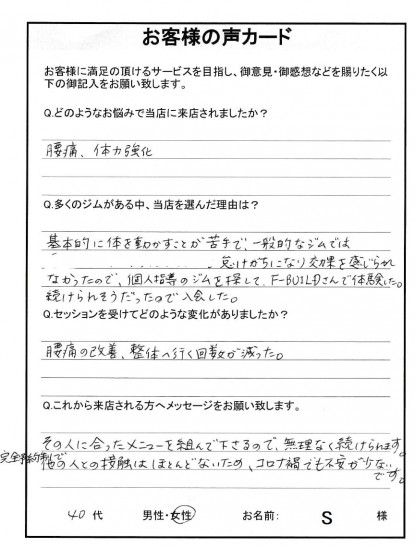 お客様の声カード
お客様に満足の頂けるサービスを目指し、御意見・御感想などを賜りたく以
下の御記入をお願い致します。
Q.どのようなお悩みで当店に来店されましたか？
腰痛、体力強化
Q.多くのジムがある中、当店を選んだ理由は？
基本的に体を動かすことが苦手で、一般的なジムでは
怠けがちになり効果を感じられ
なかったので、個人指導のジムを探して、F-BUILDさんで体験した。
続けられそうだったので入会した。
Q.セッションを受けてどのような変化がありましたか？
腰痛の改善、整体へ行く回数が減った。
Q.これから来店される方へメッセージをお願い致します。
その人に合ったメニューを組んで下さるので、無理なく続けられます。
完全予約制で
他の人との接触はほとんどないため、コロナ禍でも不安が少ない
です。
40代 男性・女性 お名前: S 様